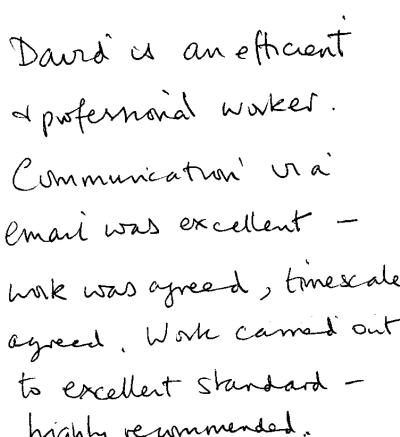 David is an efficient
& professional worker.
Communication via
email was excellent –
work was agreed, timescale
agreed. Work carried out
to excellent standard –
highly recommended.